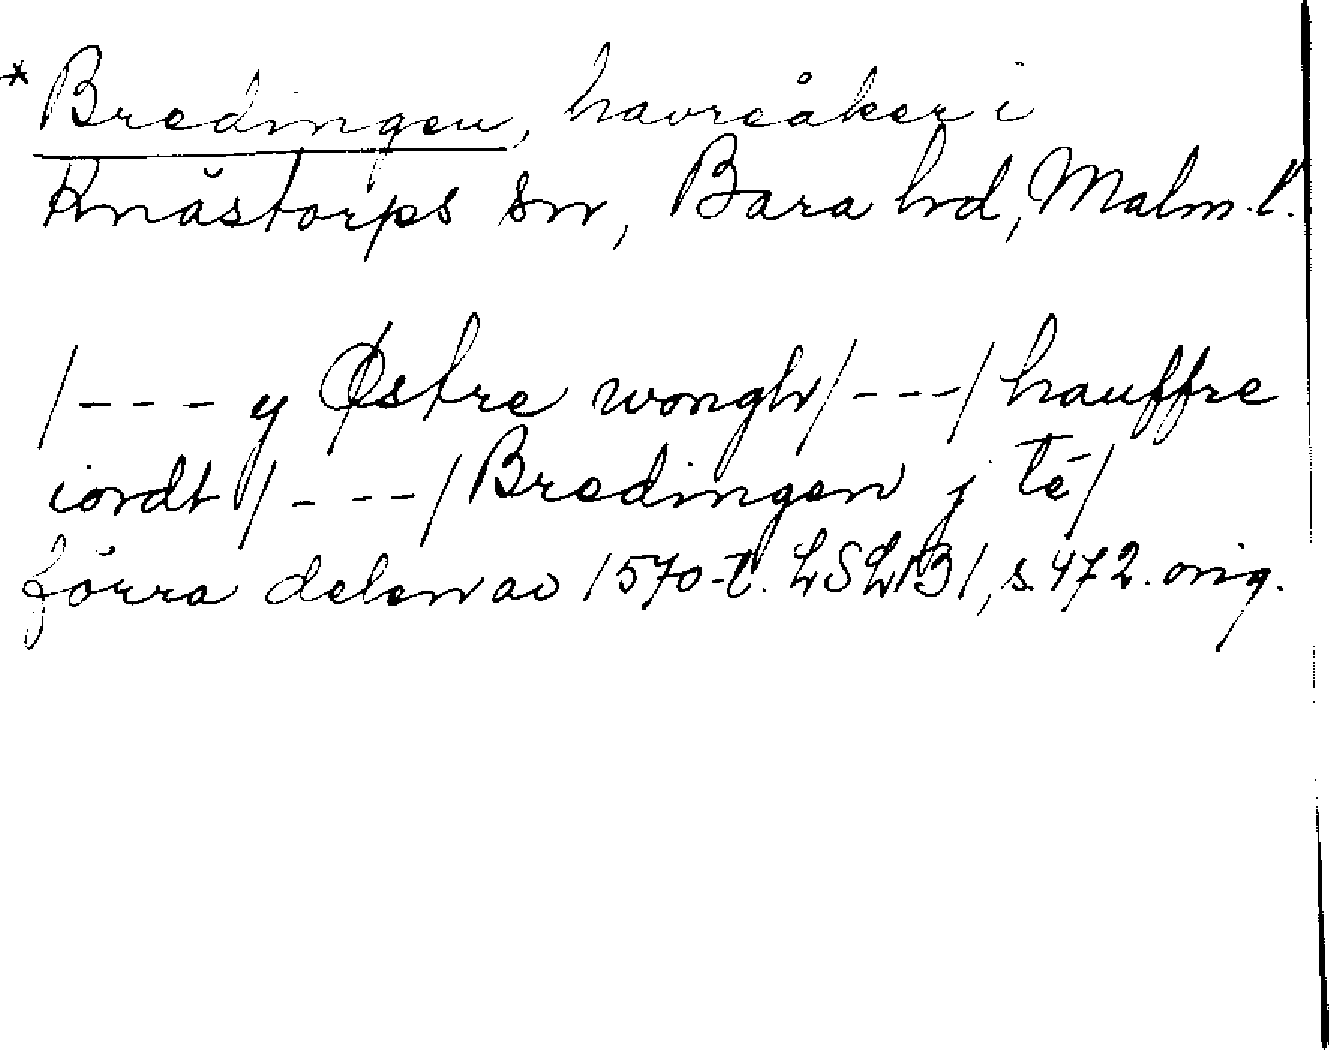 *Bredingen, havreåker i
Knästorps sn, Bara hd, Malm.l.
/--- y Østre wongh/---/ hauffre
iordt/---/ Bredingen j té/
förra delen av 1570-t. LSLB1, s.472. orig.